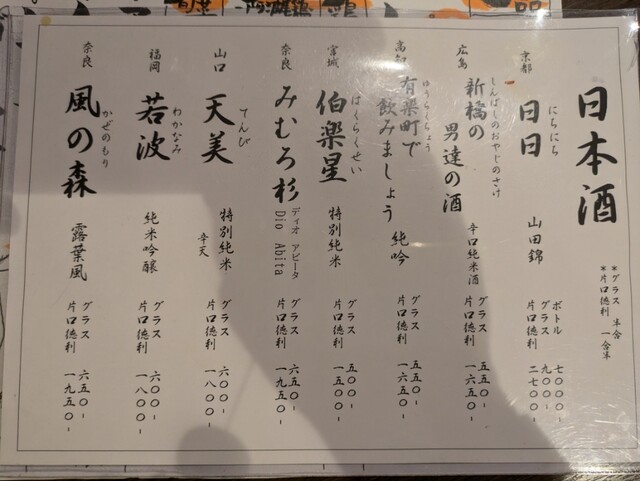 日本酒
*グラス 半合
*片口徳利 一合半
京都
日日
にちにち
山田錦
ボトル 七〇〇〇-
グラス 九〇〇-
片口徳利 二七〇〇-
広島
しんばしのおやじのさけ
新橋の
男達の酒
辛口純米酒
グラス 五五〇-
片口徳利 一六五〇-
高知
ゆうらくちょう
有楽町で
飲みましょう
純吟
グラス 五五〇-
片口徳利 一六五〇-
宮城
はくらくせい
伯楽星
特別純米
グラス 五〇〇-
片口徳利 一五〇〇-
奈良
みむろ杉
ディオ アビータ
Dio Abita
グラス 六五〇-
片口徳利 一九五〇-
山口
てんび
天美
特別純米
辛天
グラス 六〇〇-
片口徳利 一八〇〇-
福岡
わかなみ
若波
純米吟醸
グラス 六〇〇-
片口徳利 一八〇〇-
奈良
かぜのもり
風の森
露葉風
グラス 六五〇-
片口徳利 一九五〇-